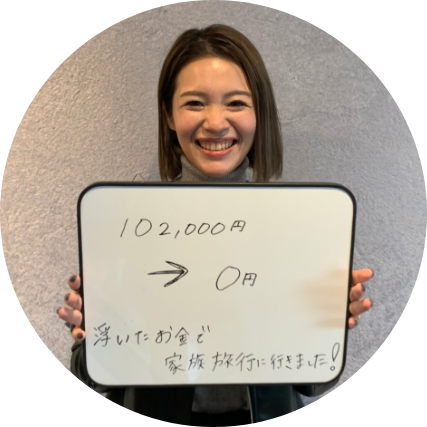 102,000円
→ 0円
浮いたお金で
家族旅行に行きました!